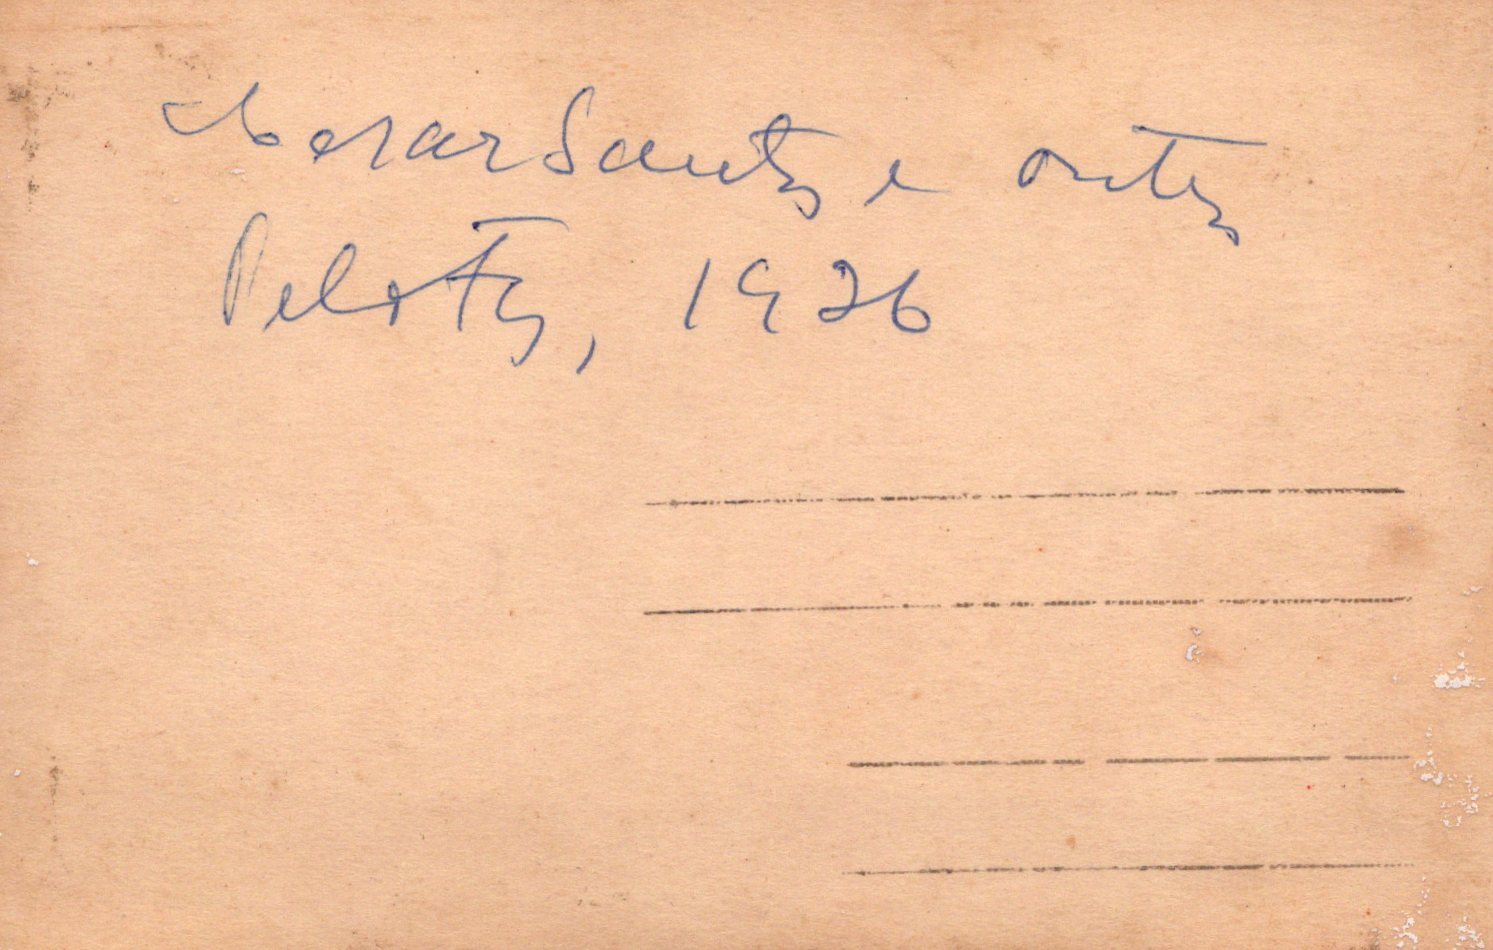 Cesar Santos e outros
Pelotas, 1926